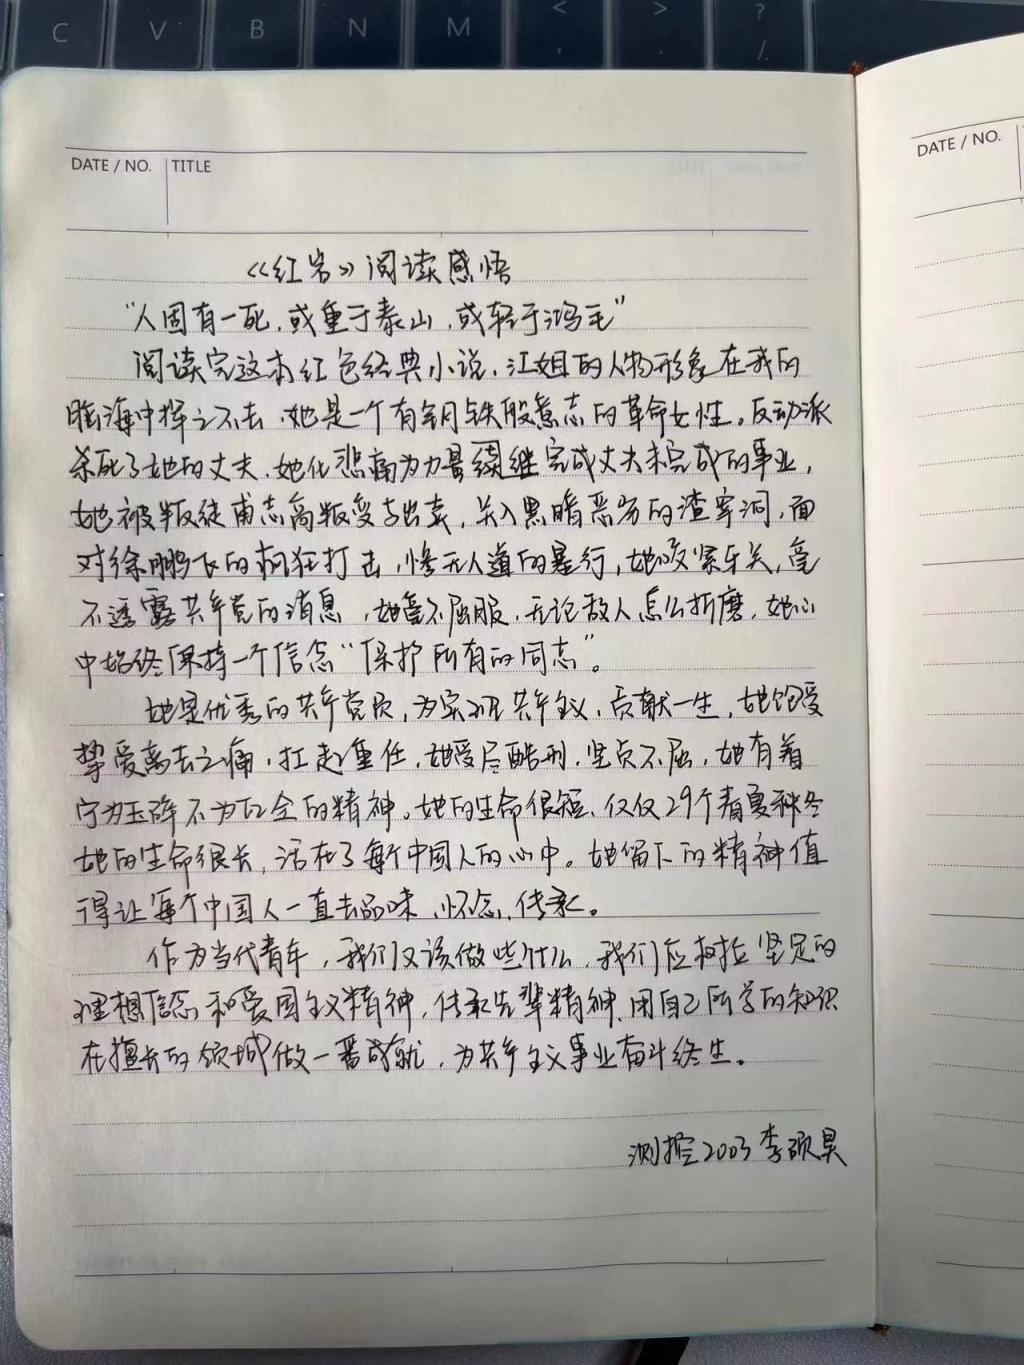 C V B N M < , > . ? /
DATE / NO. TITLE
DATE / NO.
《红岩》阅读感悟
“人固有一死,或重于泰山,或轻于鸿毛”
阅读完这本红色经典小说,江姐的人物形象在我的
脑海中挥之不去,她是一个有钢铁般意志的革命女性。反动派
杀死了她的丈夫,她化悲痛为力量继续完成丈夫未完成的事业,
她被叛徒甫志高叛变出卖,关入黑暗恶劣的渣宰洞,面
对徐鹏飞的疯狂打击,惨无人道的暴行,她咬紧牙关,毫
不透露共产党的消息,她毫不屈服,无论敌人怎么折磨,她心
中始终保持一个信念“保护所有的同志”。
她是优秀的共产党员,为实现共产主义,贡献一生,她饱受
挚爱离去之痛,扛起重任,她受尽酷刑,坚贞不屈,她有着
宁为玉碎不为瓦全的精神。她的生命很短,仅仅29个春夏秋冬
她的生命很长,活在了每个中国人的心中。她留下的精神值
得让每个中国人一直去品味,怀念,传承。
作为当代青年,我们又该做些什么,我们应树立坚定的
理想信念和爱国主义精神,传承先辈精神,用自己所学的知识
在擅长的领域做一番成就,为共产主义事业奋斗终生。
测控2003 李硕昊